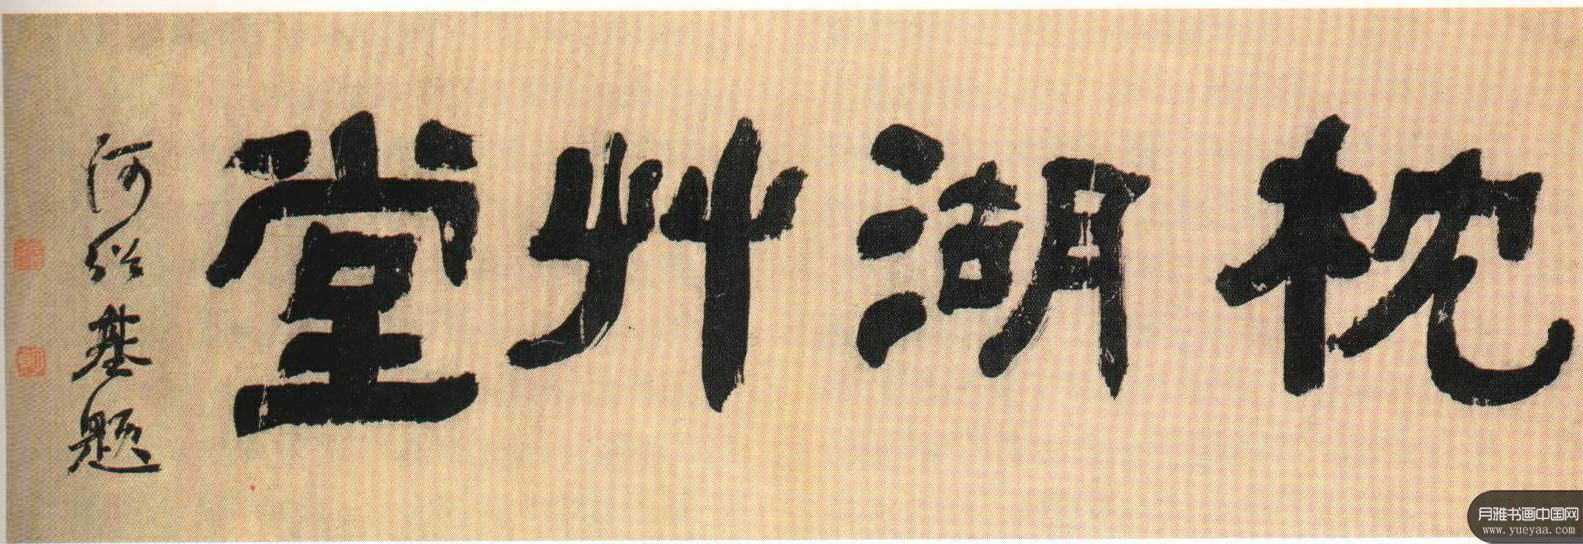 枕湖艸堂
何紹基題
月雅书画中国网
www.yueyaa.com